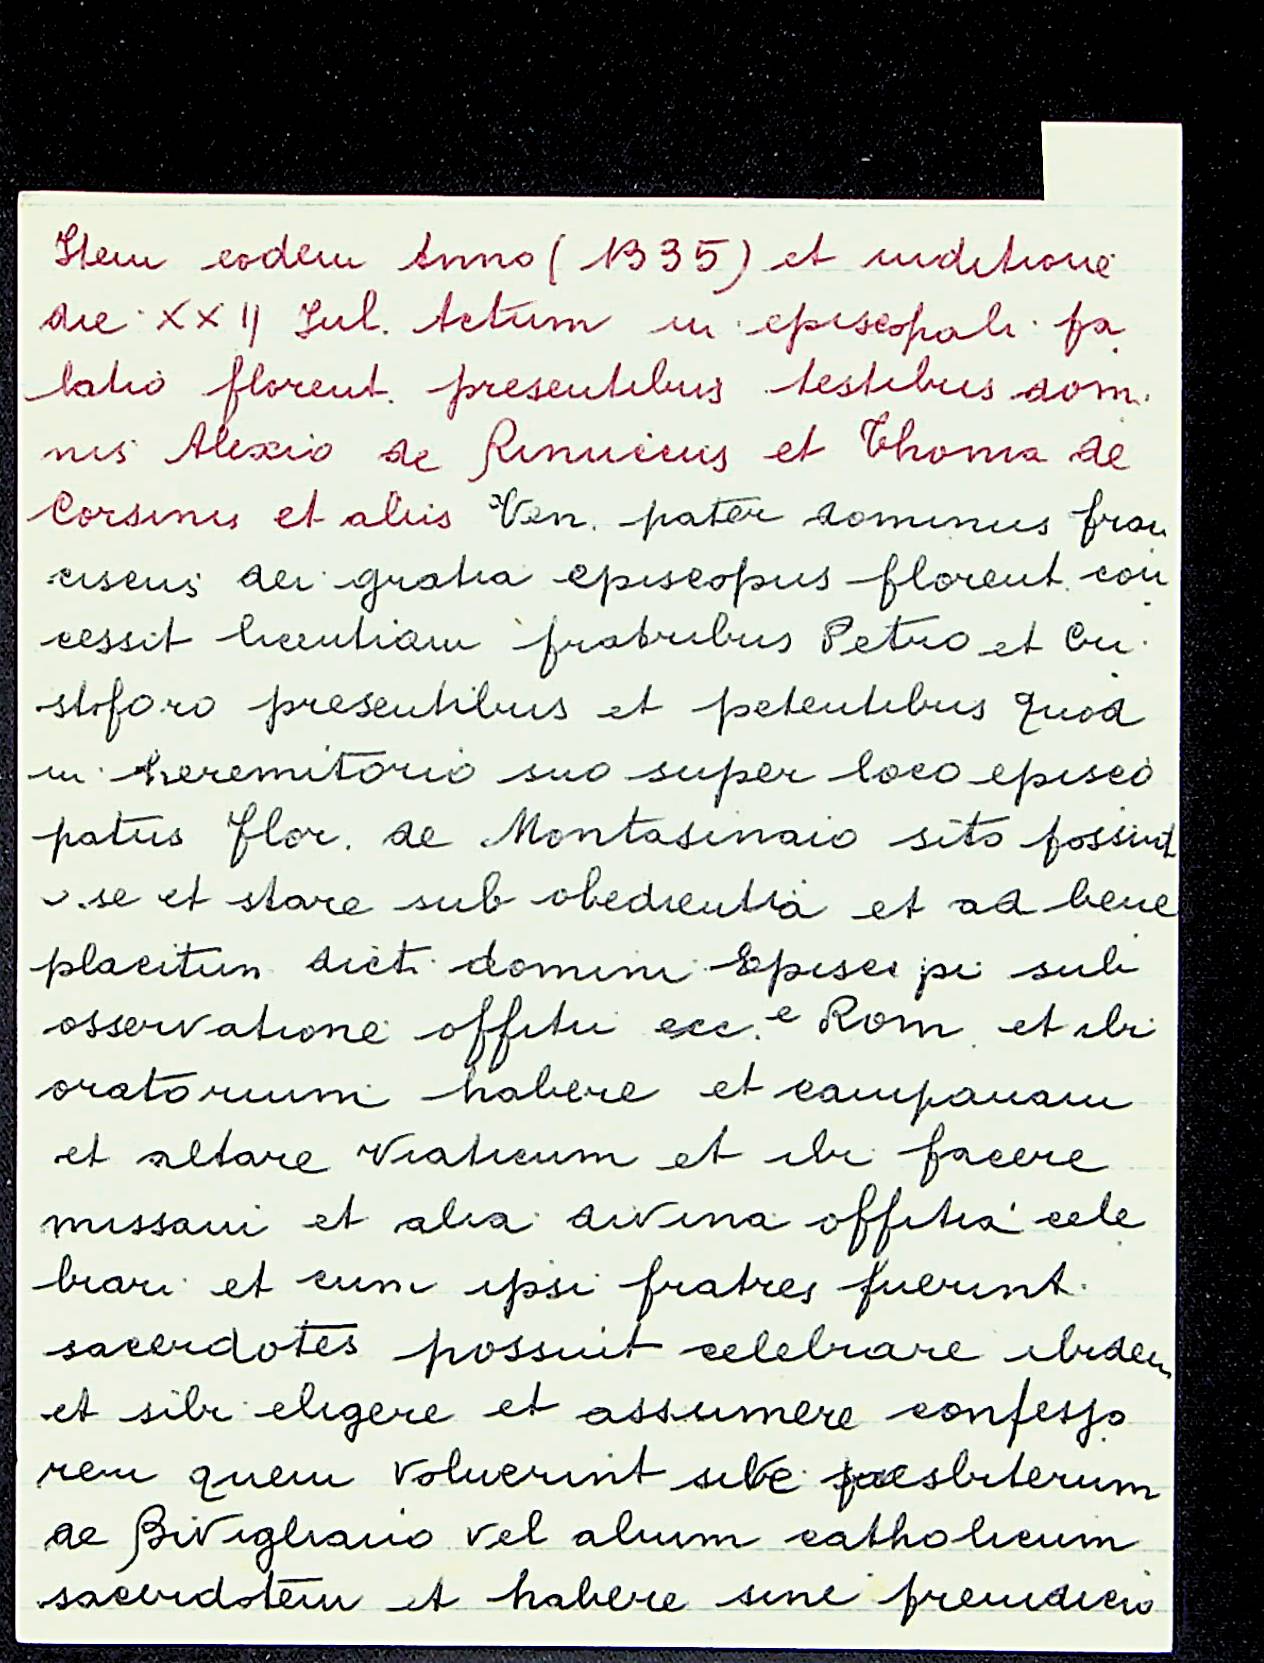 Item eodem Anno (1335) et inditione
die XXII Jul. Actum in episcopali pa
latio florent. presentibus testibus dom.
nis Alexio de Rinucius et Thoma de
Corsinis et aliis Ven. pater dominus fran
ciscus dei gratia episcopus florent. con
cessit licentiam fratribus Petro et Cri
stoforo presentibus et petentibus quod
in heremitorio suo super loco episco
patus flor. de Montasinaio sito possint
se et stare sub obedientia et ad bene
placitum dicti domini Episcopi sub
osservatione offitii ecc.e Rom. et ibi
oratorium habere et campanam
et altare viaticum et ibi facere
missam et alia divina offitia cele
brari et cum ipsi fratres fuerint
sacerdotes possint celebrare ibidem
et sibi eligere et assumere confesso
rem quem voluerint sive presbiterum
de Bivigliano vel alium catholicum
sacerdotem et habere sine preiudicio